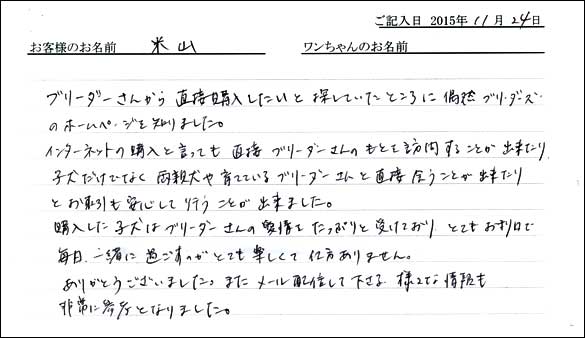 ご記入日 2015年 11月 24日
お客様のお名前 米山 ワンちゃんのお名前
ブリーダーさんから直接購入したいと探していたところに偶然ブリーダーズ・
のホームページを知りました。
インターネットの購入と言っても直接ブリーダーさんのもとを訪問することが出来たり
子犬だけでなく両親犬や育てているブリーダーさんと直接会うことが出来たり
とお取引も安心して行うことが出来ました。
購入した子犬はブリーダーさんの愛情をたっぷりと受けており とてもお利口で
毎日一緒に過ごすのがとても楽しくて仕方ありません。
ありがとうございました。またメール配信して下さる様々な情報も
非常に参考となりました。